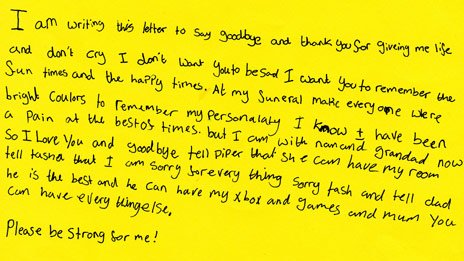 I am writing this letter to say goodbye and thank you for giveing me life
and don't cry I don't want you to be sad I want you to remember the
fun times and the happy times. At my funeral make everyone were
bright coulors to remember my personalaty I know I have been
a pain at the besto's times. but I am with nan and grandad now
so I love you and goodbye tell piper that she can have my room
tell tasha that I am sorry for every thing sorry tash and tell dad
he is the best and he can have my xbox and games and mum you
can have every thing else.
Please be strong for me!